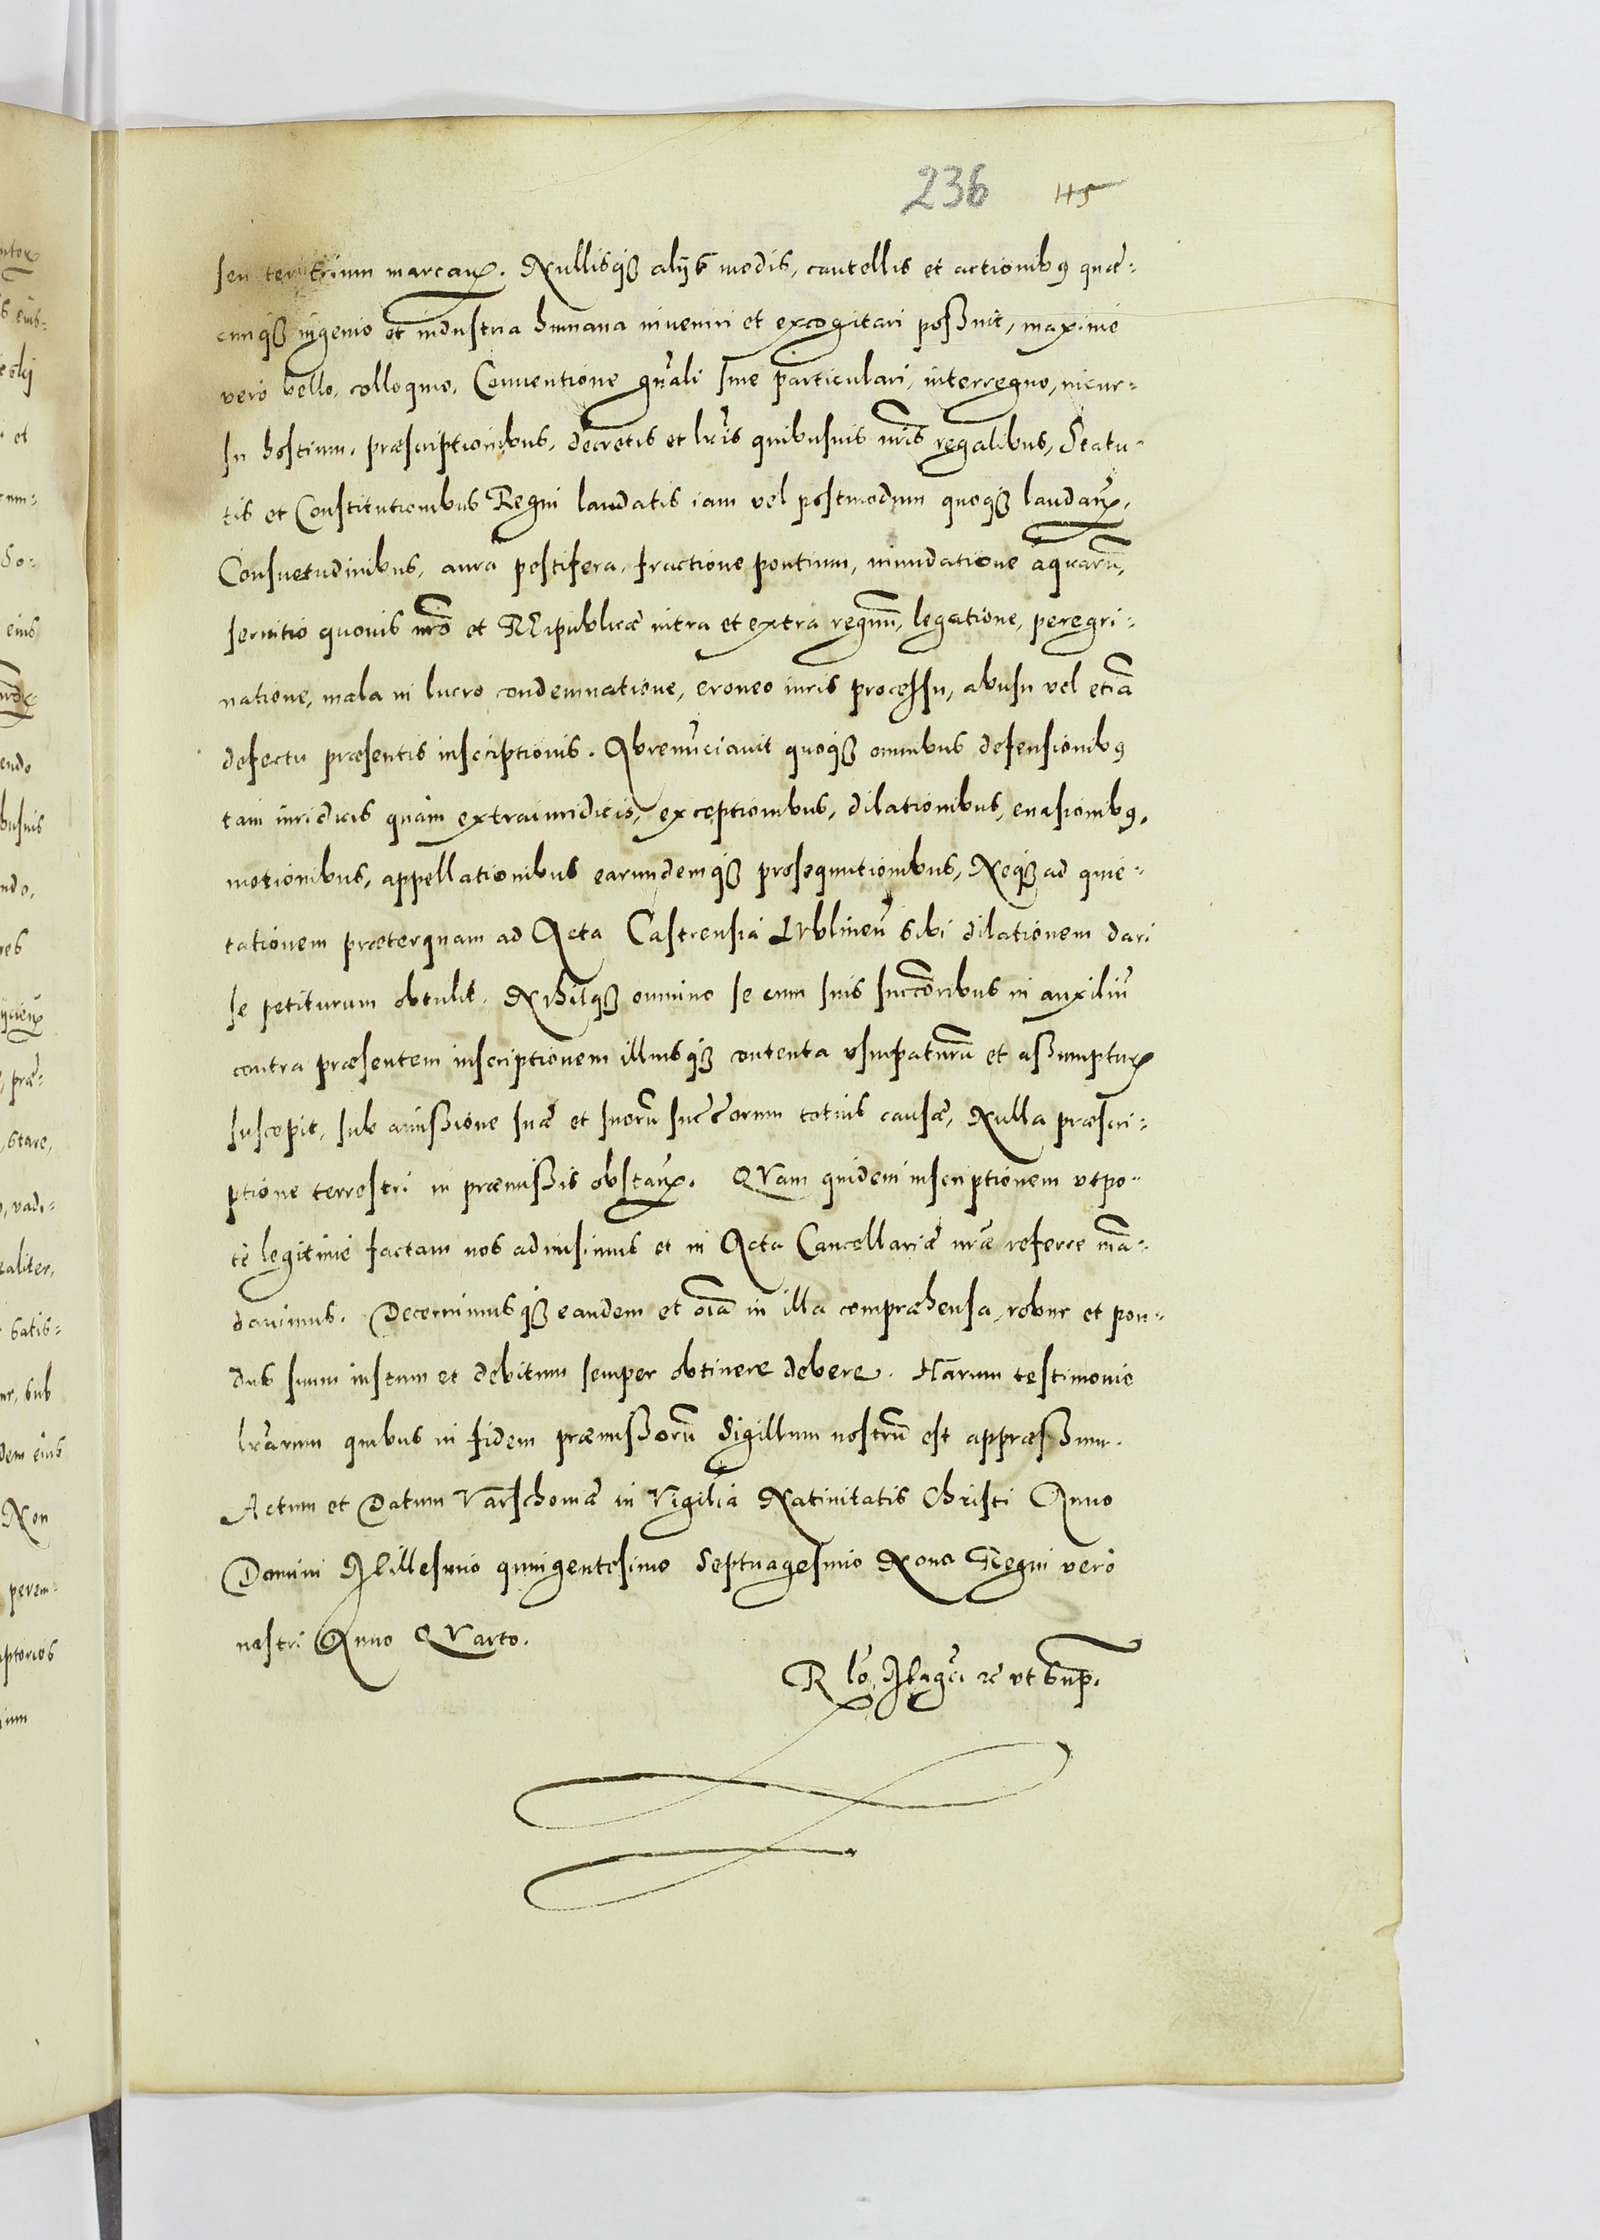 236 115
seu ter trium marcarum. Nullisq3 alijs modis, cautellis et actionib9 quæ-
cunq3 ingenio et industria humana inveniri et excogitari possunt, maxime
vero bello, colloquio, Conventione gn̄ali sive particulari, interregno, incur-
su hostium, præscriptionibus, decretis et lr̄is quibusuis nr̄is regalibus, Statu-
tis et Constitutionibus Regni laudatis iam vel postmodum quoq3 laudan̄.
Consuetudinibus, aura pestifera, fractione pontium, inundatione aquarū,
seruitio quouis nr̄o et Reipublicæ intra et extra regnū, legatione, peregri-
natione, mala in lucro condemnatione, eroneo iuris processu, abusu vel etiā
defectu præsentis inscriptionis. Abrenūciauit quoq3 omnibus defensionib9
tam iuridicis quam extraiuridicis, exceptionibus, dilationibus, euasionib9,
motionibus, appellationibus earundemq3 prosequutionibus, Neq3 ad quie-
tationem præterquam ad Acta Castrensia Lublinen̄ sibi dilationem dari
se petiturum obtulit. Nihilq3 omnino se cum suis succ̄oribus in auxiliū
contra præsentem inscriptionem illiusq3 contenta vsurpaturū et assumptur̄
suscepit, sub amissione suæ et suorū succ̄orum totius causæ, Nulla præscri-
ptione terrestri in præmissis obstan̄. QVam quidem inscriptionem vtpo-
te legitime factam nos admisimus et in Acta Cancellariæ nr̄æ referre mā-
dauimus. Decernimusq3 eandem et oīa in illa compræhensa, robur et pon-
dus suum iustum et debitum semper obtinere debere. Harum testimonio
lr̄arum quibus in fidem præmissorū Sigillum nostrū est appræssum.
Actum et Datum Varschouiæ in Vigilia Natiuitatis Christi Anno
Domini Millesimo quingentesimo Septuagesimo Nono Regni vero
nostri Anno QVarto.
R lō Maḡci rc̄ vt sup.